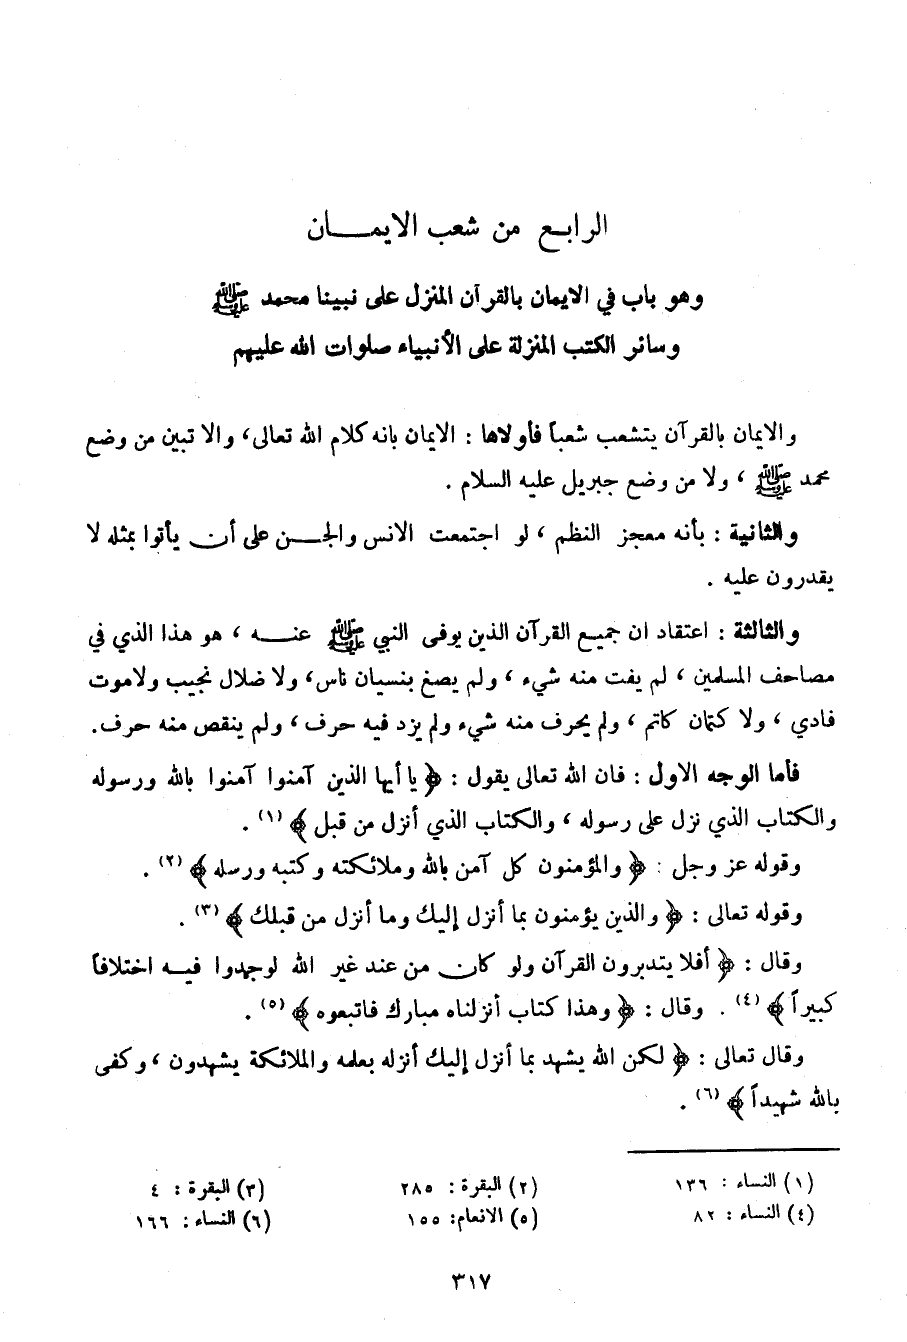 الرابع من شعب الايمان
وهو باب في الايمان بالقرآن المنزل على نبينا محمد ﷺ
وسائر الكتب المنزلة على الأنبياء صلوات الله عليهم
والايمان بالقرآن يتشعب شعباً فأولاها : الايمان بانه كلام الله تعالى، والا تبين من وضع
محمد ﷺ ، ولا من وضع جبريل عليه السلام .
والثانية : بأنه معجز النظم ، لو اجتمعت الانس والجن على أن يأتوا بمثله لا
يقدرون عليه .
والثالثة : اعتقاد ان جميع القرآن الذين يوفى النبي ﷺ عنه ، هو هذا الذي في
مصاحف المسلمين ، لم يفت منه شيء ، ولم يصغ بنسيان ناس، ولا ضلال نجيب ولاموت
فادي ، ولا كتمان كاتم ، ولم يحرف منه شيء ولم يزد فيه حرف ، ولم ينقص منه حرف.
فأما الوجه الاول : فان الله تعالى يقول : ﴿ يا أيها الذين آمنوا آمنوا بالله ورسوله
والكتاب الذي نزل على رسوله ، والكتاب الذي أنزل من قبل ﴾ (١) .
وقوله عز وجل : ﴿ والمؤمنون كل آمن بالله وملائكته وكتبه ورسله ﴾ (٢) .
وقوله تعالى : ﴿ والذين يؤمنون بما أنزل إليك وما أنزل من قبلك ﴾ (٣) .
وقال : ﴿ أفلا يتدبرون القرآن ولو كان من عند غير الله لوجدوا فيه اختلافاً
كبيراً ﴾ (٤) . وقال : ﴿ وهذا كتاب أنزلناه مبارك فاتبعوه ﴾ (٥) .
وقال تعالى : ﴿ لكن الله يشهد بما أنزل إليك أنزله بعلمه والملائكة يشهدون ، وكفى
بالله شهيداً ﴾ (٦) .
(١) النساء : ١٣٦ (٢) البقرة : ٢٨٥ (٣) البقرة : ٤
(٤) النساء : ٨٢ (٥) الانعام: ١٥٥ (٦) النساء : ١٦٦
٣١٧